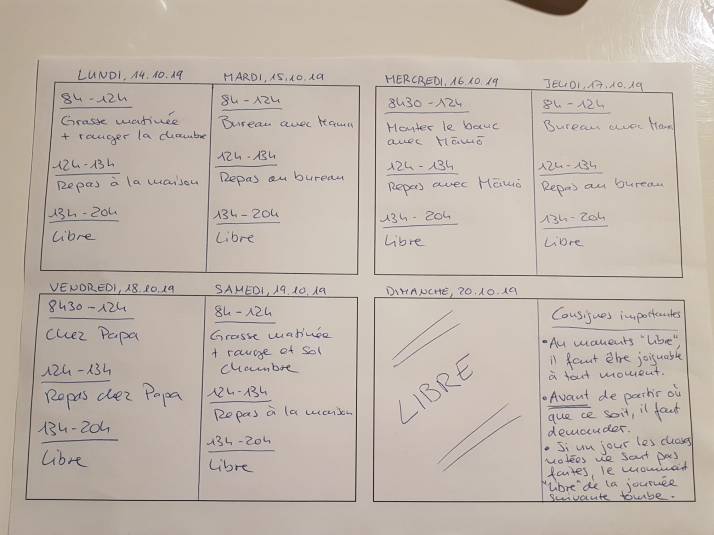 LUNDI, 14.10.19
8h - 12h
Grasse matinée
+ ranger la chambre
12h - 13h
Repas à la maison
13h - 20h
Libre
MARDI, 15.10.19
8h - 12h
Bureau avec Mama
12h - 13h
Repas au bureau
13h - 20h
Libre
MERCREDI, 16.10.19
8h30 - 12h
Monter le banc
avec Mämö
12h - 13h
Repas avec Mämö
13h - 20h
Libre
JEUDI, 17.10.19
8h - 12h
Bureau avec Mama
12h - 13h
Repas au bureau
13h - 20h
Libre
VENDREDI, 18.10.19
8h30 - 12h
Chez Papa
12h - 13h
Repas chez Papa
13h - 20h
Libre
SAMEDI, 19.10.19
8h - 12h
Grasse matinée
+ range et sol
chambre
12h - 13h
Repas à la maison
13h - 20h
Libre
DIMANCHE, 20.10.19
LIBRE
Consignes importantes
• Au moments "Libre",
il faut être joignable
à tout moment.
• Avant de partir où
que ce soit, il faut
demander.
• Si un jour les choses
notées ne sont pas
faites, le moment
"Libre" de la journée
suivante tombe.